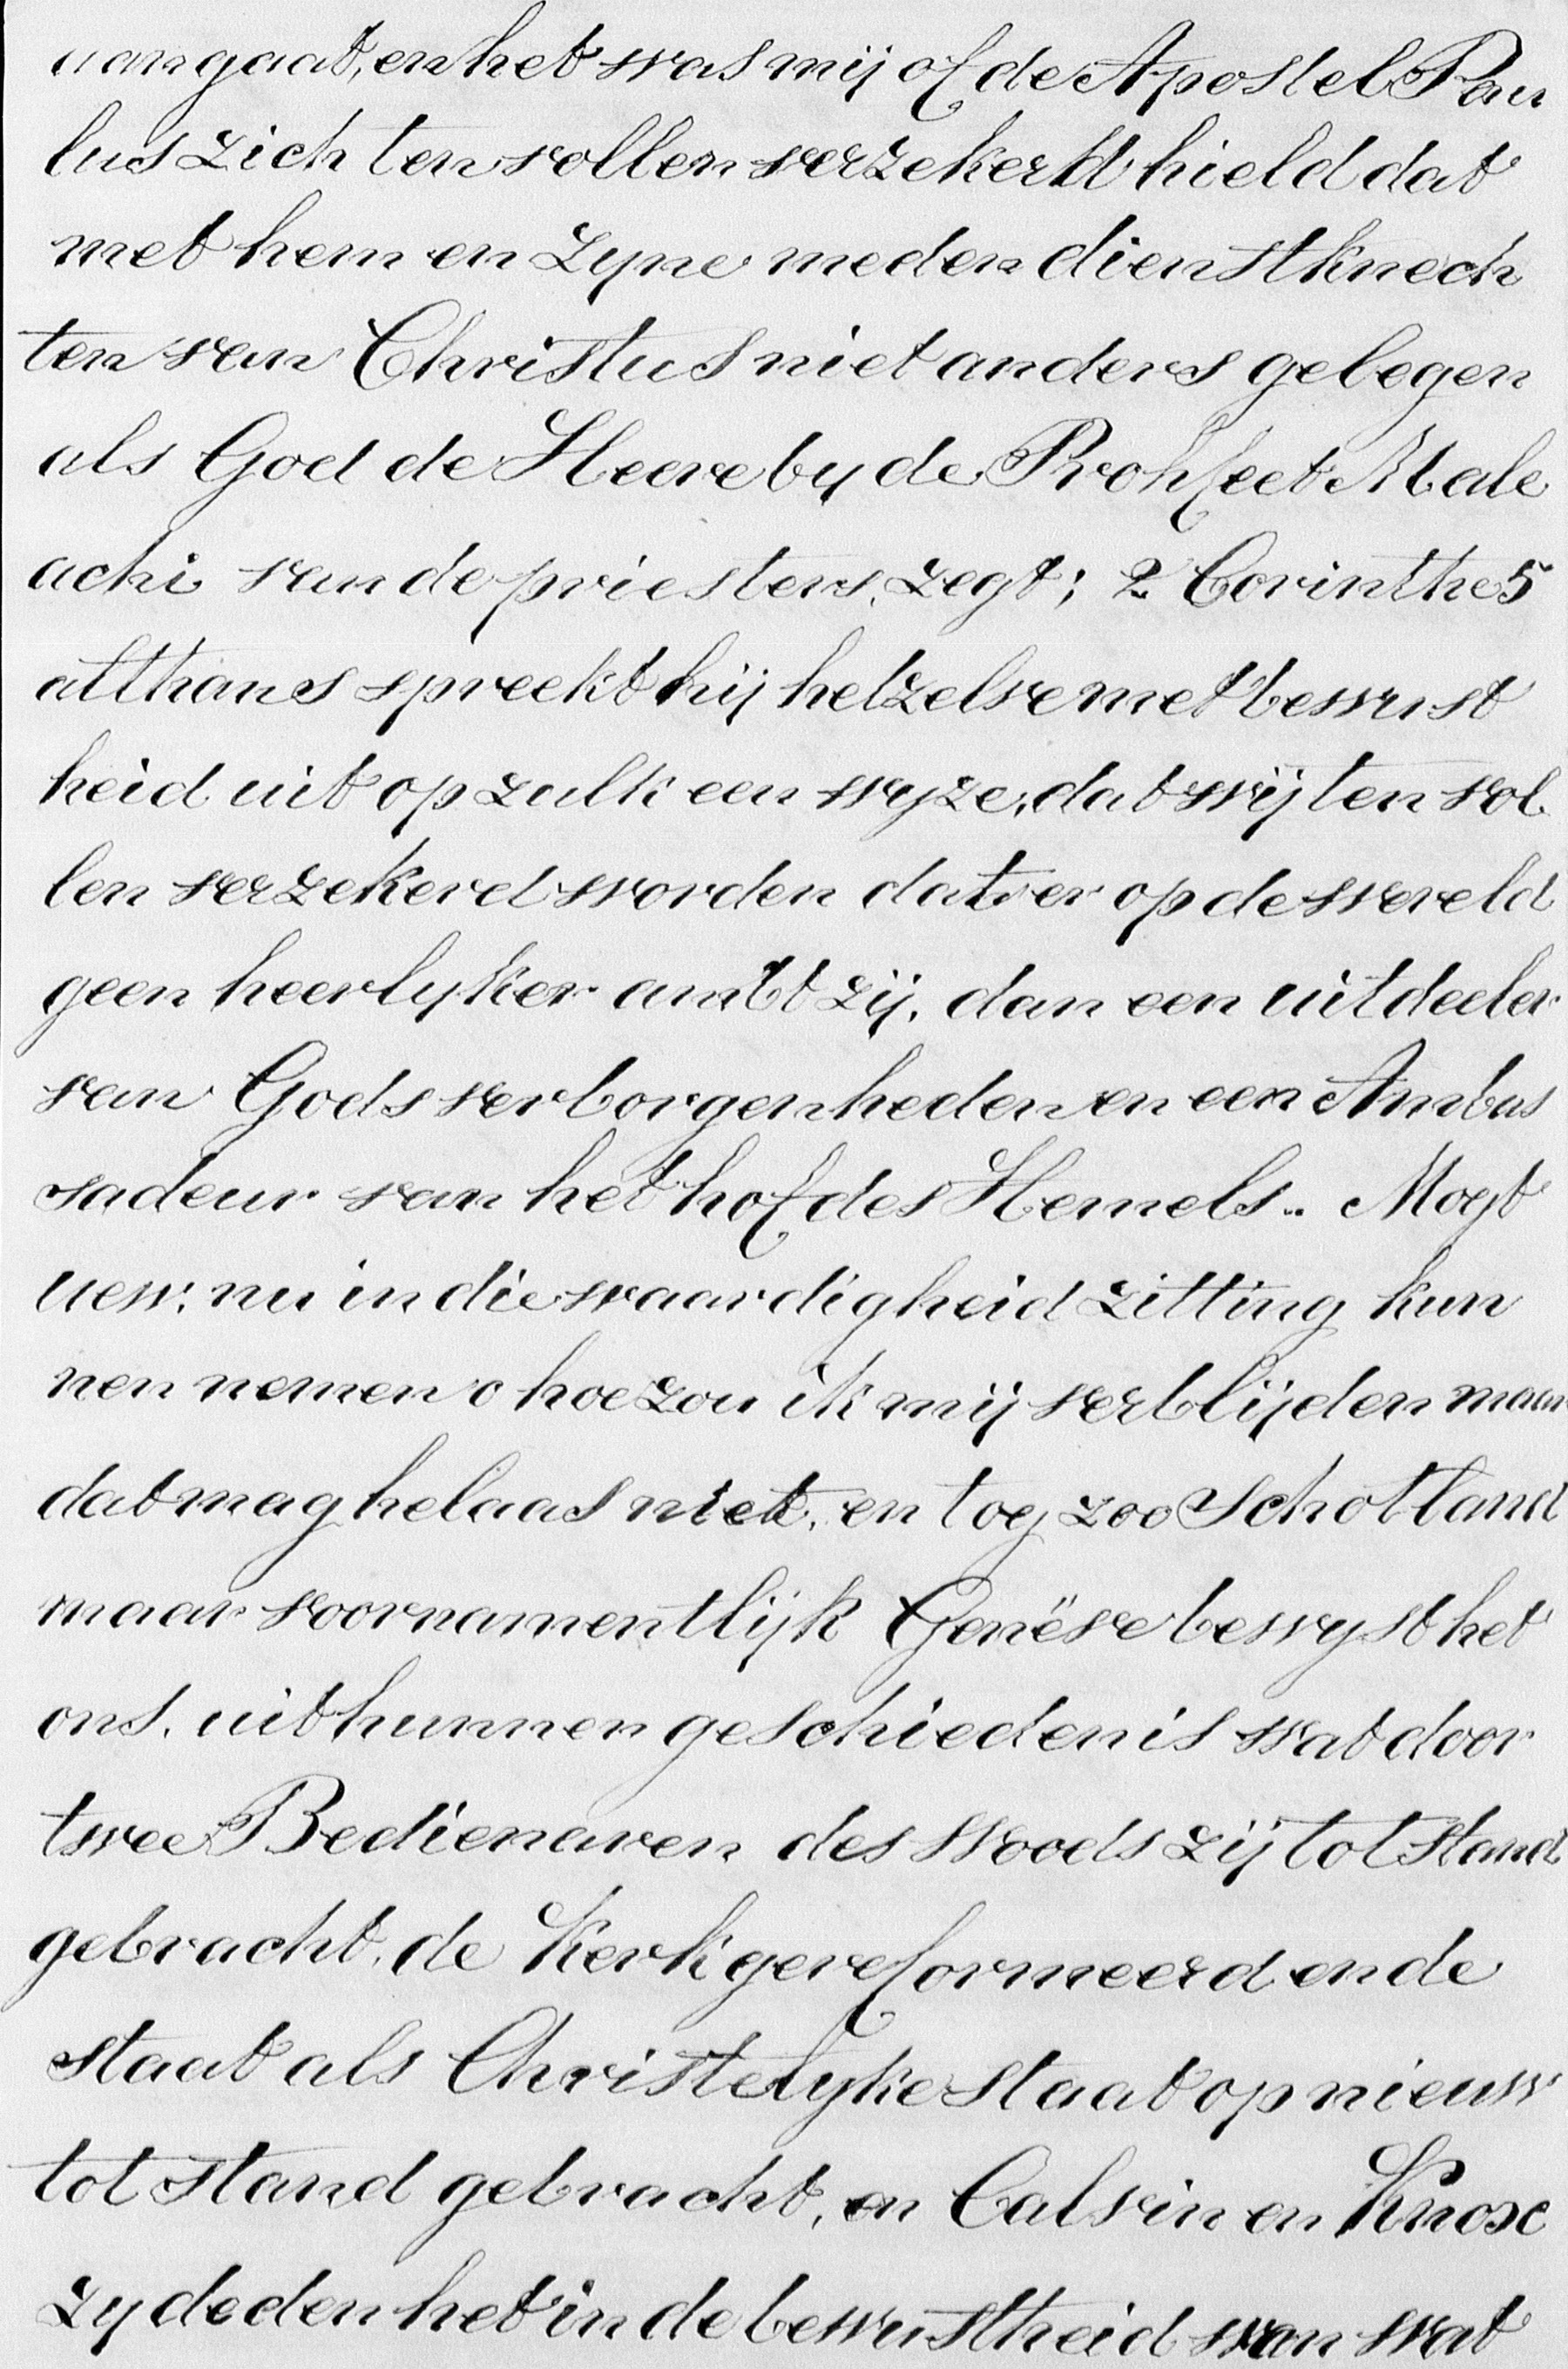 aangaat, en het was mij of de Apostel Pau
lus zich ten vollen verzekerd hield dat
met hem en zyne meden dienstknech
ten van Christus niet anders gelegen
als God de Heere by de Prohfeet Male
achi van de priesters, zegt; 2 Corinthe 5
althans spreekt hij hetzelve met bewust
heid uit op zulk een wyze, dat wij ten vol
len verzekerd worden dat er op de wereld
geen heerlyker ambt zij, dan een uitdeeler
van Gods verborgenheden en een Ambas
sadeur van het hof des Hemels.. Mogt
uew. nu in die waardigheid zitting kun
nen nemen o hoe zou ik mij verblijden maar
dat mag helaas niet, en tog zoo Schotland
maar voornamentlijk Genëve bewyst het
ons, uit hunnen geschiedenis wat door
twee Bedienaren des Woods zij tot stand
gebracht, de Kerk gereformeerd en de
staat als Christelyke staat op nieuw
tot stand gebracht, en Calvin en Knox
zy deden het in de bewustheid van wat